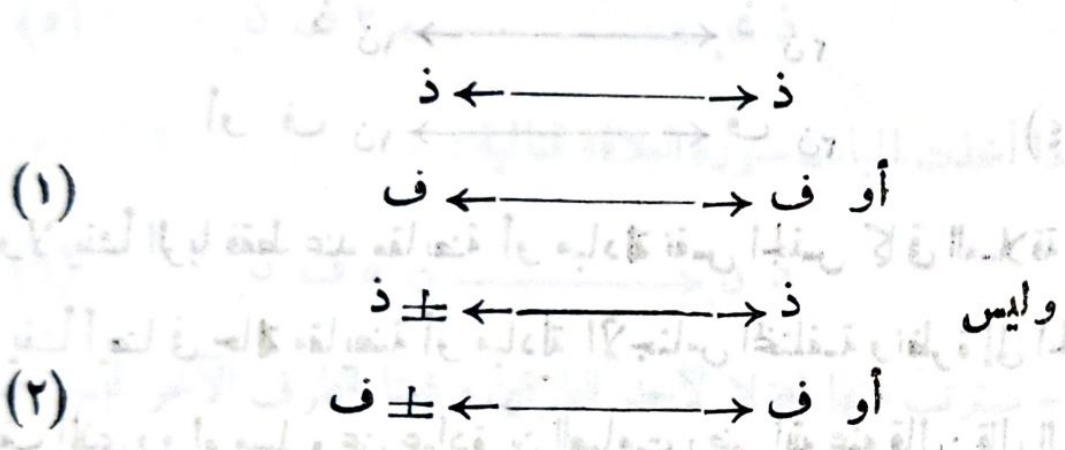 ذ ←——→ ذ
أو ف ←——→ ف (١)
وليس ذ ←——→ ± ذ
أو ف ←——→ ± ف (٢)